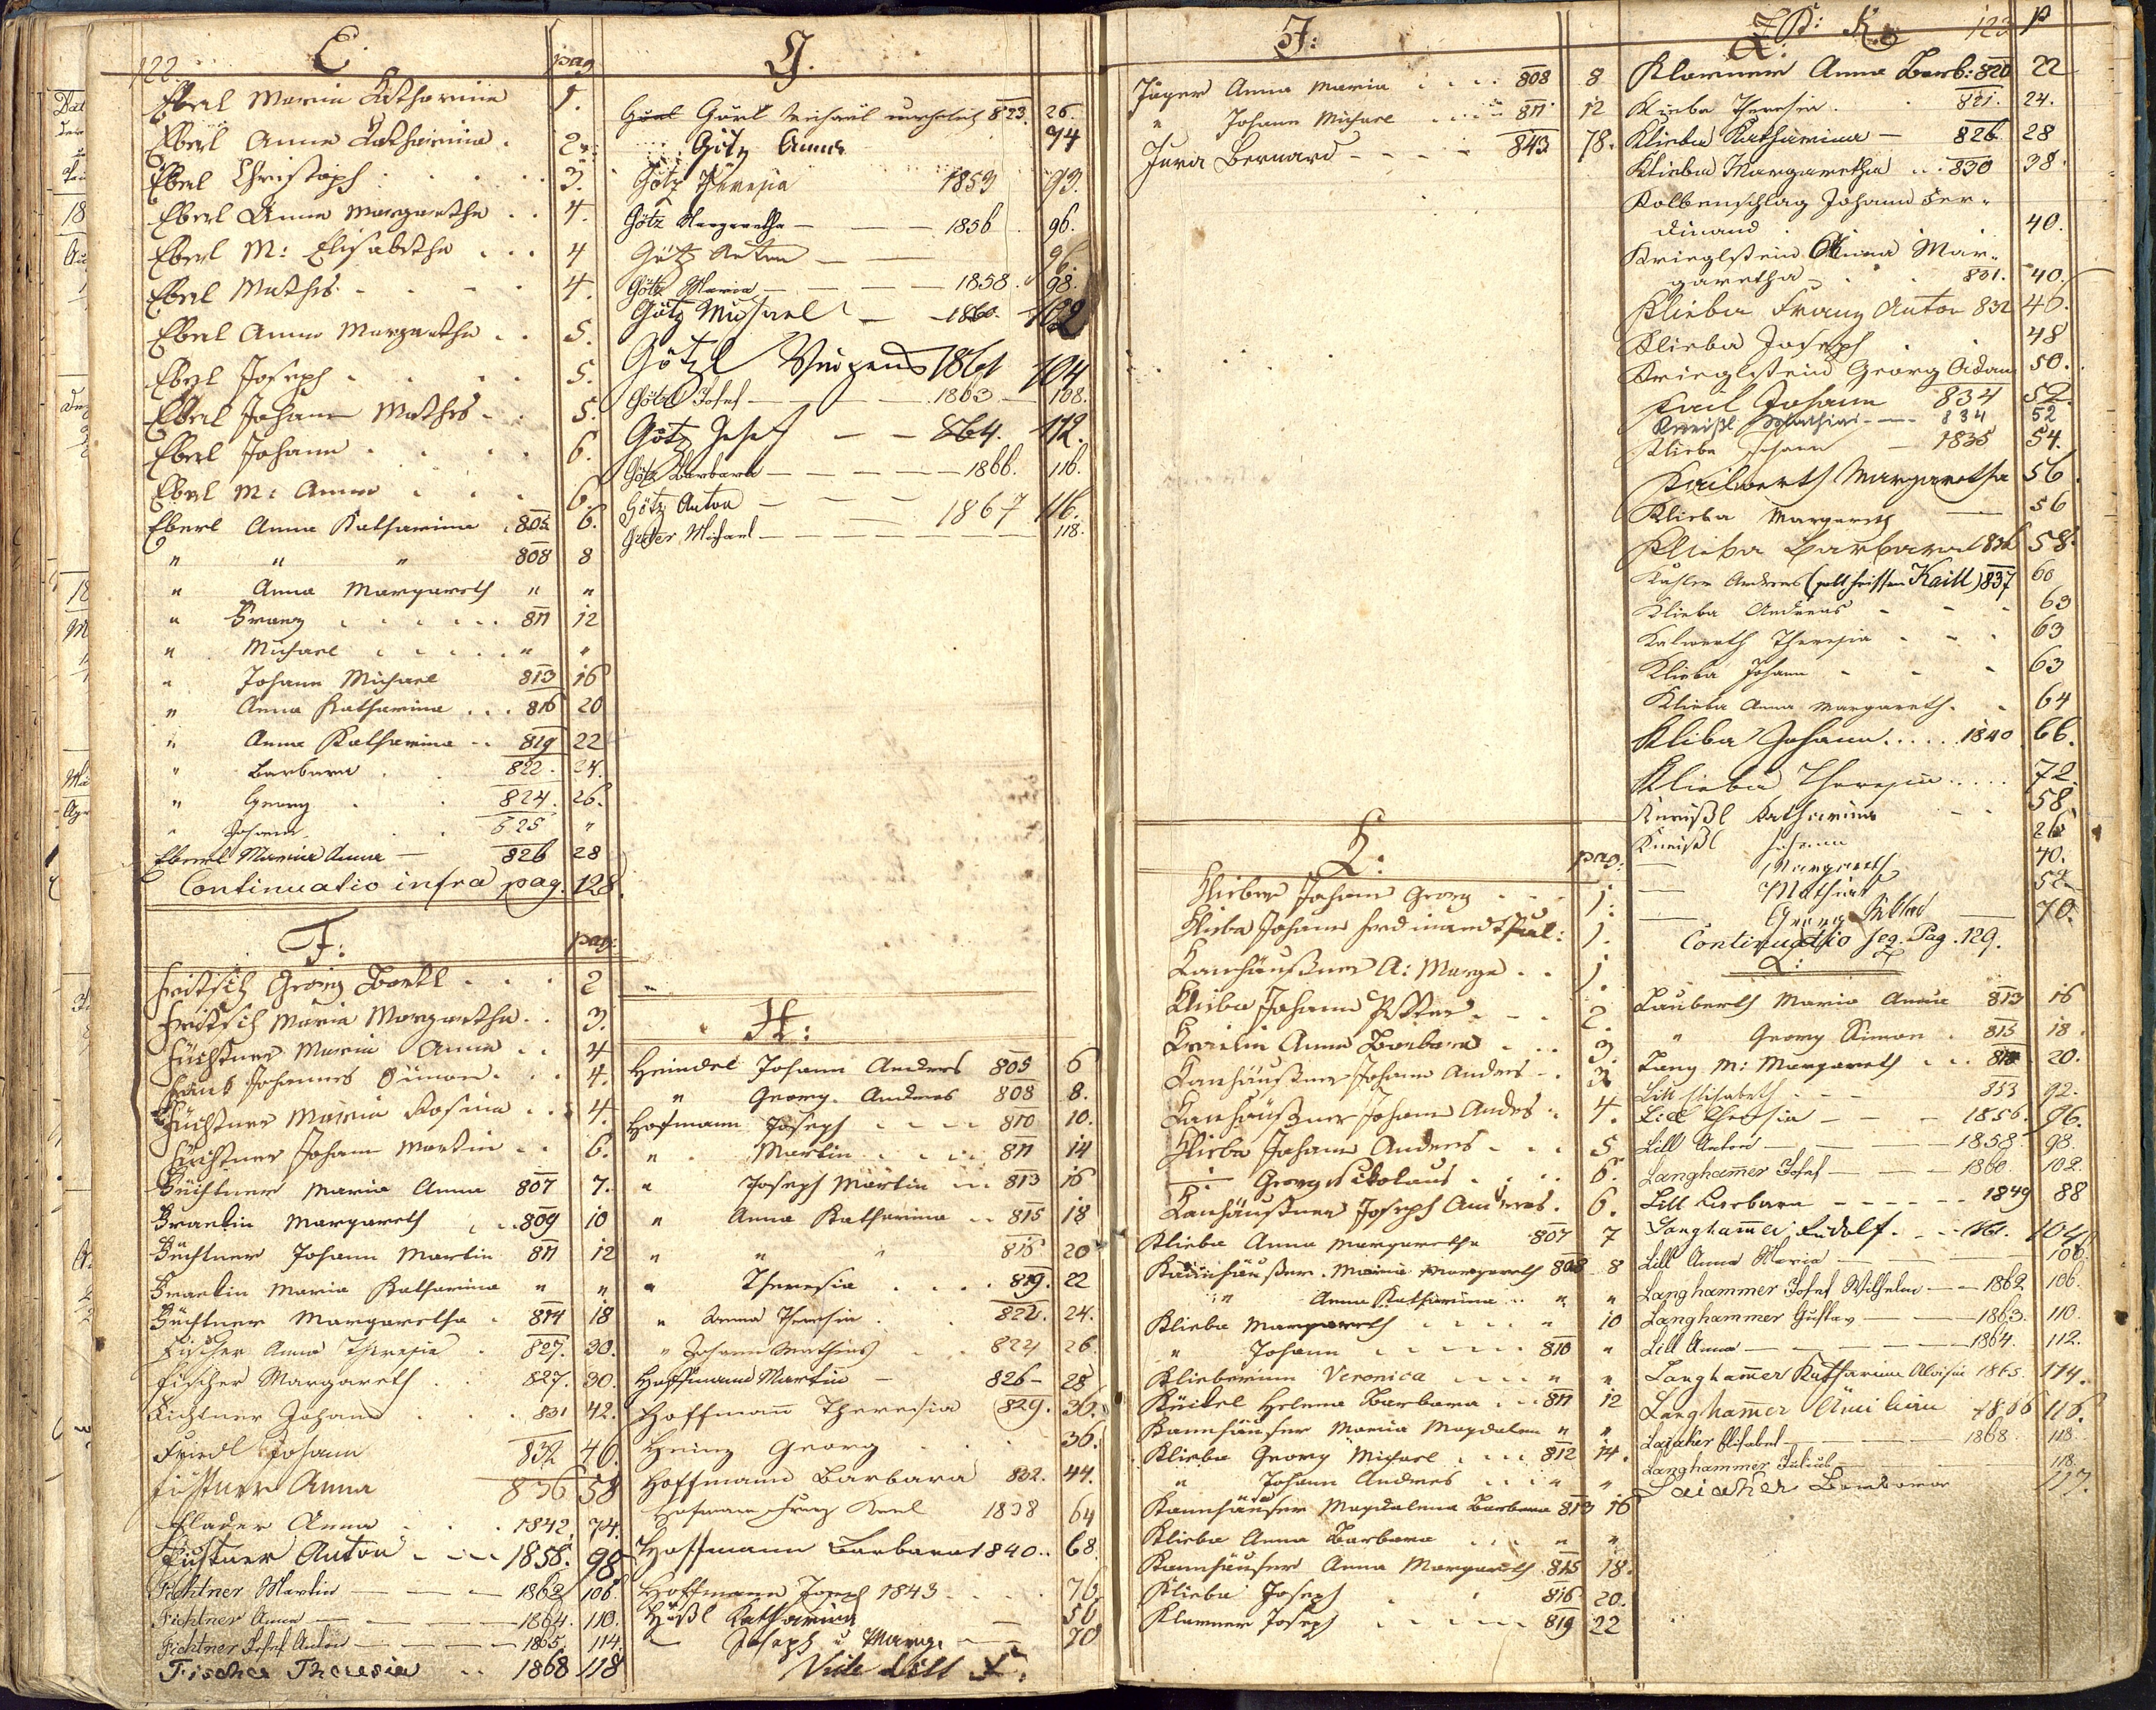 122.
E.
pag
Eberl Maria Catharina 1.
Eberl Anna Catharina . 2.
Eberl Christoph . . . . 3.
Eberl Anna Margaretha . . 4.
Eberl M: Elisabetha . . . 4
Eberl Mathes . . . . 4.
Eberl Anna Margaretha . . 5.
Eberl Joseph . . . . 5.
Eberl Johann Mathes . . 5.
Eberl Johann . . . . 6.
Eberl M: Anna . . . 6.
Eberl Anna Katharina . 805 6.
" " " 808 8
" Anna Margareth " "
" Franz . . . . . . 811 12
" Michael . . . . . " "
" Johann Michael 813 16
" Anna Katharina . . . 816 20
" Anna Katharina . . 819 22
" Barbara . . 822. 24.
" Georg . . 824. 26.
" Johann . . 825 "
Eberl Maria Anna — 826 28
Continuatio infra pag. 128.
F:
pag:
Fritsch Georg Bartl . . . 2
Fritsch Maria Margaretha . . 3.
Füchtner Maria Anna . . 4
Johannes Simon . . . 4.
Füchtner Maria Rosina . . 4.
Füchtner Johann Martin . . 6.
Füchtner Maria Anna 807 7.
Margareth . . 809 10
Füchtner Johann Martin 811 12
Maria Katharina " "
Füchtner Margaretha . 814 18
Fischer Anna Theresia . 827. 30.
Fischer Margareth . . 827. 30.
Fichtner Johann . . . 831 42.
Friedl Johann 832 46.
Füchtner Anna 836 58
Flader Anna . . . 1842. 74.
Fichtner Anton . . . 1858. 98.
Fichtner Martin — — — 1862 106
Fichtner Anna — — — 1864. 110.
Fichtner Josef Anton — — — 1865. 114.
Fischer Theresia . . 1868 118
G.
Görl Michael unehelich 823. 26.
Götz Anna 74
Götz Theresia 1853 93.
Götz Margaretha — — 1856 96.
Götz Anton — — 96.
Götz Maria — — — 1858. 98.
Götz Michael — 1860. 102
Götzl Vinzens 1861 104
Götzl Josef — — — 1863 — 108.
Götz Josef — — 864. 112.
Götz Barbara — — — 1866. 116.
Götz Anton — — — 1867 116.
Michael — — — — — 118.
H:
Heindel Johann Andres 805 6
" Georg Andreas 808 8.
Hofmann Joseph . . . . 810 10.
" Martin . . . . 811 14
" Joseph Martin . . . 813 16
" Anna Katharina . . 815 18
" " " 816 20
" Theresia . . . 819. 22
" Anna Theresia . . 822. 24.
" Johann Mathias . . 824 26.
Hoffmann Martin — 826 — 28
Hoffmann Theresia 829. 36.
Heinz Georg . . . . 36.
Hoffmann Barbara 832. 44.
Hofmann Franz Karl 1838 64
Hoffmann Barbara 1840 . . 68.
Hoffmann Joseph 1843 . . . 76.
Hößl Katharina — 56
— Joseph u Marg. — — 70
Vide Lill L.
J:
Jäger Anna Maria . . . . 808 8
" Johann Michael . . . . 811 12
Jura Bernard — — — — 843 78.
K:
pag:
Klieber Johann Georg . . . 1.
Klieba Johann Ferdinand Paul: 1.
Kanhäußner A: Marga . . 1.
Klieba Johann Peter . . . 2.
Anna Barbara . . . 3.
Kanhäußner Johann Andres . . 3
Kanhäußner Johann Andres . . 4.
Klieba Johann Andres . . . 5
— Georg Nikolaus . . . . 6.
Kanhäußner Joseph Andreas . 6.
Klieba Anna Margaretha 807 7
Kannhäußer Maria Margareth 808 8
" Anna Katharina . . " "
Klieba Margareth . . . . " 10
" Johann . . . . . 810 "
Klieberinn Veronica . . . . " "
Helena Barbara . . . 811 12
Kannhäuser Maria Magdalen " "
Klieba Georg Michael . . . 812 14.
" Johann Andres . . . " "
Kannhäuser Magdalena Barbara 813 16
Klieba Anna Barbara . . . " "
Kannhäuser Anna Margareth 815 18.
Klieba Joseph . . 816 20.
Klarner Joseph . . . . . 819 22
K:
123
p
Klarner Anna Barb: 820 22
Klieba Theresia . . 821. 24.
Klieba Katharina — 826. 28
Klieba Margaretha . . . 830 38.
Kolbenschlag Johann Fer-
dinand . 40.
Krieglstein Anna Mar-
garetha . . 831. 40.
Klieba Franz Anton 832 46.
Klieba Joseph . . 48
Krieglstein Georg Adam 50.
Kail Johann 834 52.
Kneißl Mathias — — 834 52
Klieba Johann — 1835 54.
Kailwerth Margaretha 56
Klieba Margareth — 56
Klieba Barbara 1836 58.
Andreas (soll heissen Kaill) 837 60
Klieba Andreas . . . 63
Kalwerth Theresia . . . 63
Klieba Johann . . . 63
Klieba Anna Margareth . . 64
Kliba Johann . . . . 1840. 66.
Klieba Theresia . . . . . 72.
Kneißl Katharina . . 58.
Kneißl Johann 26
— Margareth 40.
— Mathias 52
— Georg — 70.
Continuatio seq. Pag. 129.
L:
Lauberth Maria Anna 813 16
" Georg Simon . 815 18.
Lang M: Margareth . . . 20.
Lill Elisabeth . . . 853 92.
Lill Theresia — — 1856. 96.
Lill Anton — — — 1858. 98.
Langhamer Josef — — — 1860. 102.
Lill Barbara — — — — 1849 88
Langhammer Rudolf . . . 1861. 104
Lill Anna Maria — — — 106.
Langhammer Josef Wilhelm — — 1862 106.
Langhammer Gustav — — 1863. 110.
Lill Anna — — — — 1864. 112.
Langhammer Katharina Aloisia 1865. 114.
Langhammer 1866 116.
Elisabet — — — 1868. 118.
Langhammer Julius — — — 118.
Barbara 117.